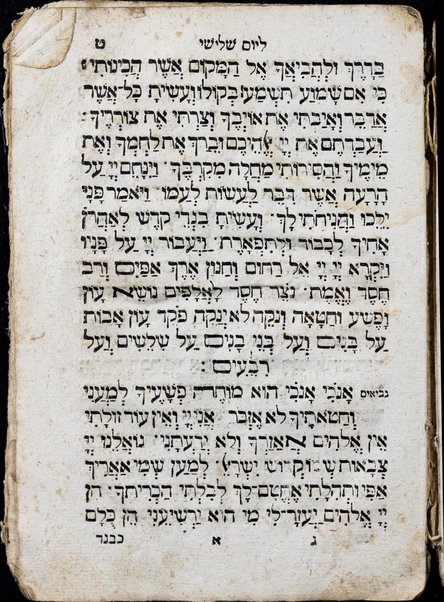 ליום שלישי ט
בַּדָּרֶךְ וְלַהֲבִיאֲךָ אֶל הַמָּקוֹם אֲשֶׁר הֲכִינוֹתִי׃
כִּי אִם שָׁמוֹעַ תִּשְׁמַע בְּקוֹלוֹ וְעָשִׂיתָ כָּל אֲשֶׁר
אֲדַבֵּר וְאָיַבְתִּי אֶת אוֹיְבֶיךָ וְצַרְתִּי אֶת צוֹרְרֶיךָ׃
וַעֲבַדְתֶּם אֶת יְיָ אֱלֹהֵיכֶם וּבֵרַךְ אֶת לַחְמְךָ וְאֶת
מֵימֶיךָ וַהֲסִירוֹתִי מַחֲלָה מִקִּרְבֶּךָ׃ וַיִּנָּחֶם יְיָ עַל
הָרָעָה אֲשֶׁר דִּבֶּר לַעֲשׂוֹת לְעַמּוֹ׃ וַיֹּאמַר פָּנַי
יֵלֵכוּ וַהֲנִיחֹתִי לָךְ׃ וְעָשִׂיתָ בִגְדֵי קֹדֶשׁ לְאַהֲרֹן
אָחִיךָ לְכָבוֹד וּלְתִפְאָרֶת׃ וַיַּעֲבוֹר יְיָ עַל פָּנָיו
וַיִּקְרָא יְיָ יְיָ אֵל רַחוּם וְחַנּוּן אֶרֶךְ אַפַּיִם וְרַב
חֶסֶד וֶאֱמֶת׃ נֹצֵר חֶסֶד לָאֲלָפִים נוֹשֵׂא עָוֹן
וָפֶשַׁע וְחַטָּאָה וְנַקֵּה לֹא יְנַקֶּה פֹּקֵד עֲוֹן אָבוֹת
עַל בָּנִים וְעַל בְּנֵי בָנִים עַל שִׁלֵּשִׁים וְעַל
רִבֵּעִים׃
נביאים אָנֹכִי אָנֹכִי הוּא מוֹחֶה פְשָׁעֶיךָ לְמַעֲנִי
וְחַטֹּאתֶיךָ לֹא אֶזְכֹּר׃ אֲנִי יְיָ וְאֵין עוֹד זוּלָתִי
אֵין אֱלֹהִים אֲאַזֶּרְךָ וְלֹא יְדַעְתָּנִי׃ גּוֹאֲלֵנוּ יְיָ
צְבָאוֹת שְׁמוֹ קְדוֹשׁ יִשְׂרָאֵל׃ לְמַעַן שְׁמִי אַאֲרִיךְ
אַפִּי וּתְהִלָּתִי אֶחֱטָם לָךְ לְבִלְתִּי הַכְרִיתֶךָ׃ הֵן
יְיָ אֱלֹהִים יַעֲזָר לִי מִי הוּא יַרְשִׁיעֵנִי הֵן כֻּלָּם
ג א כבגד